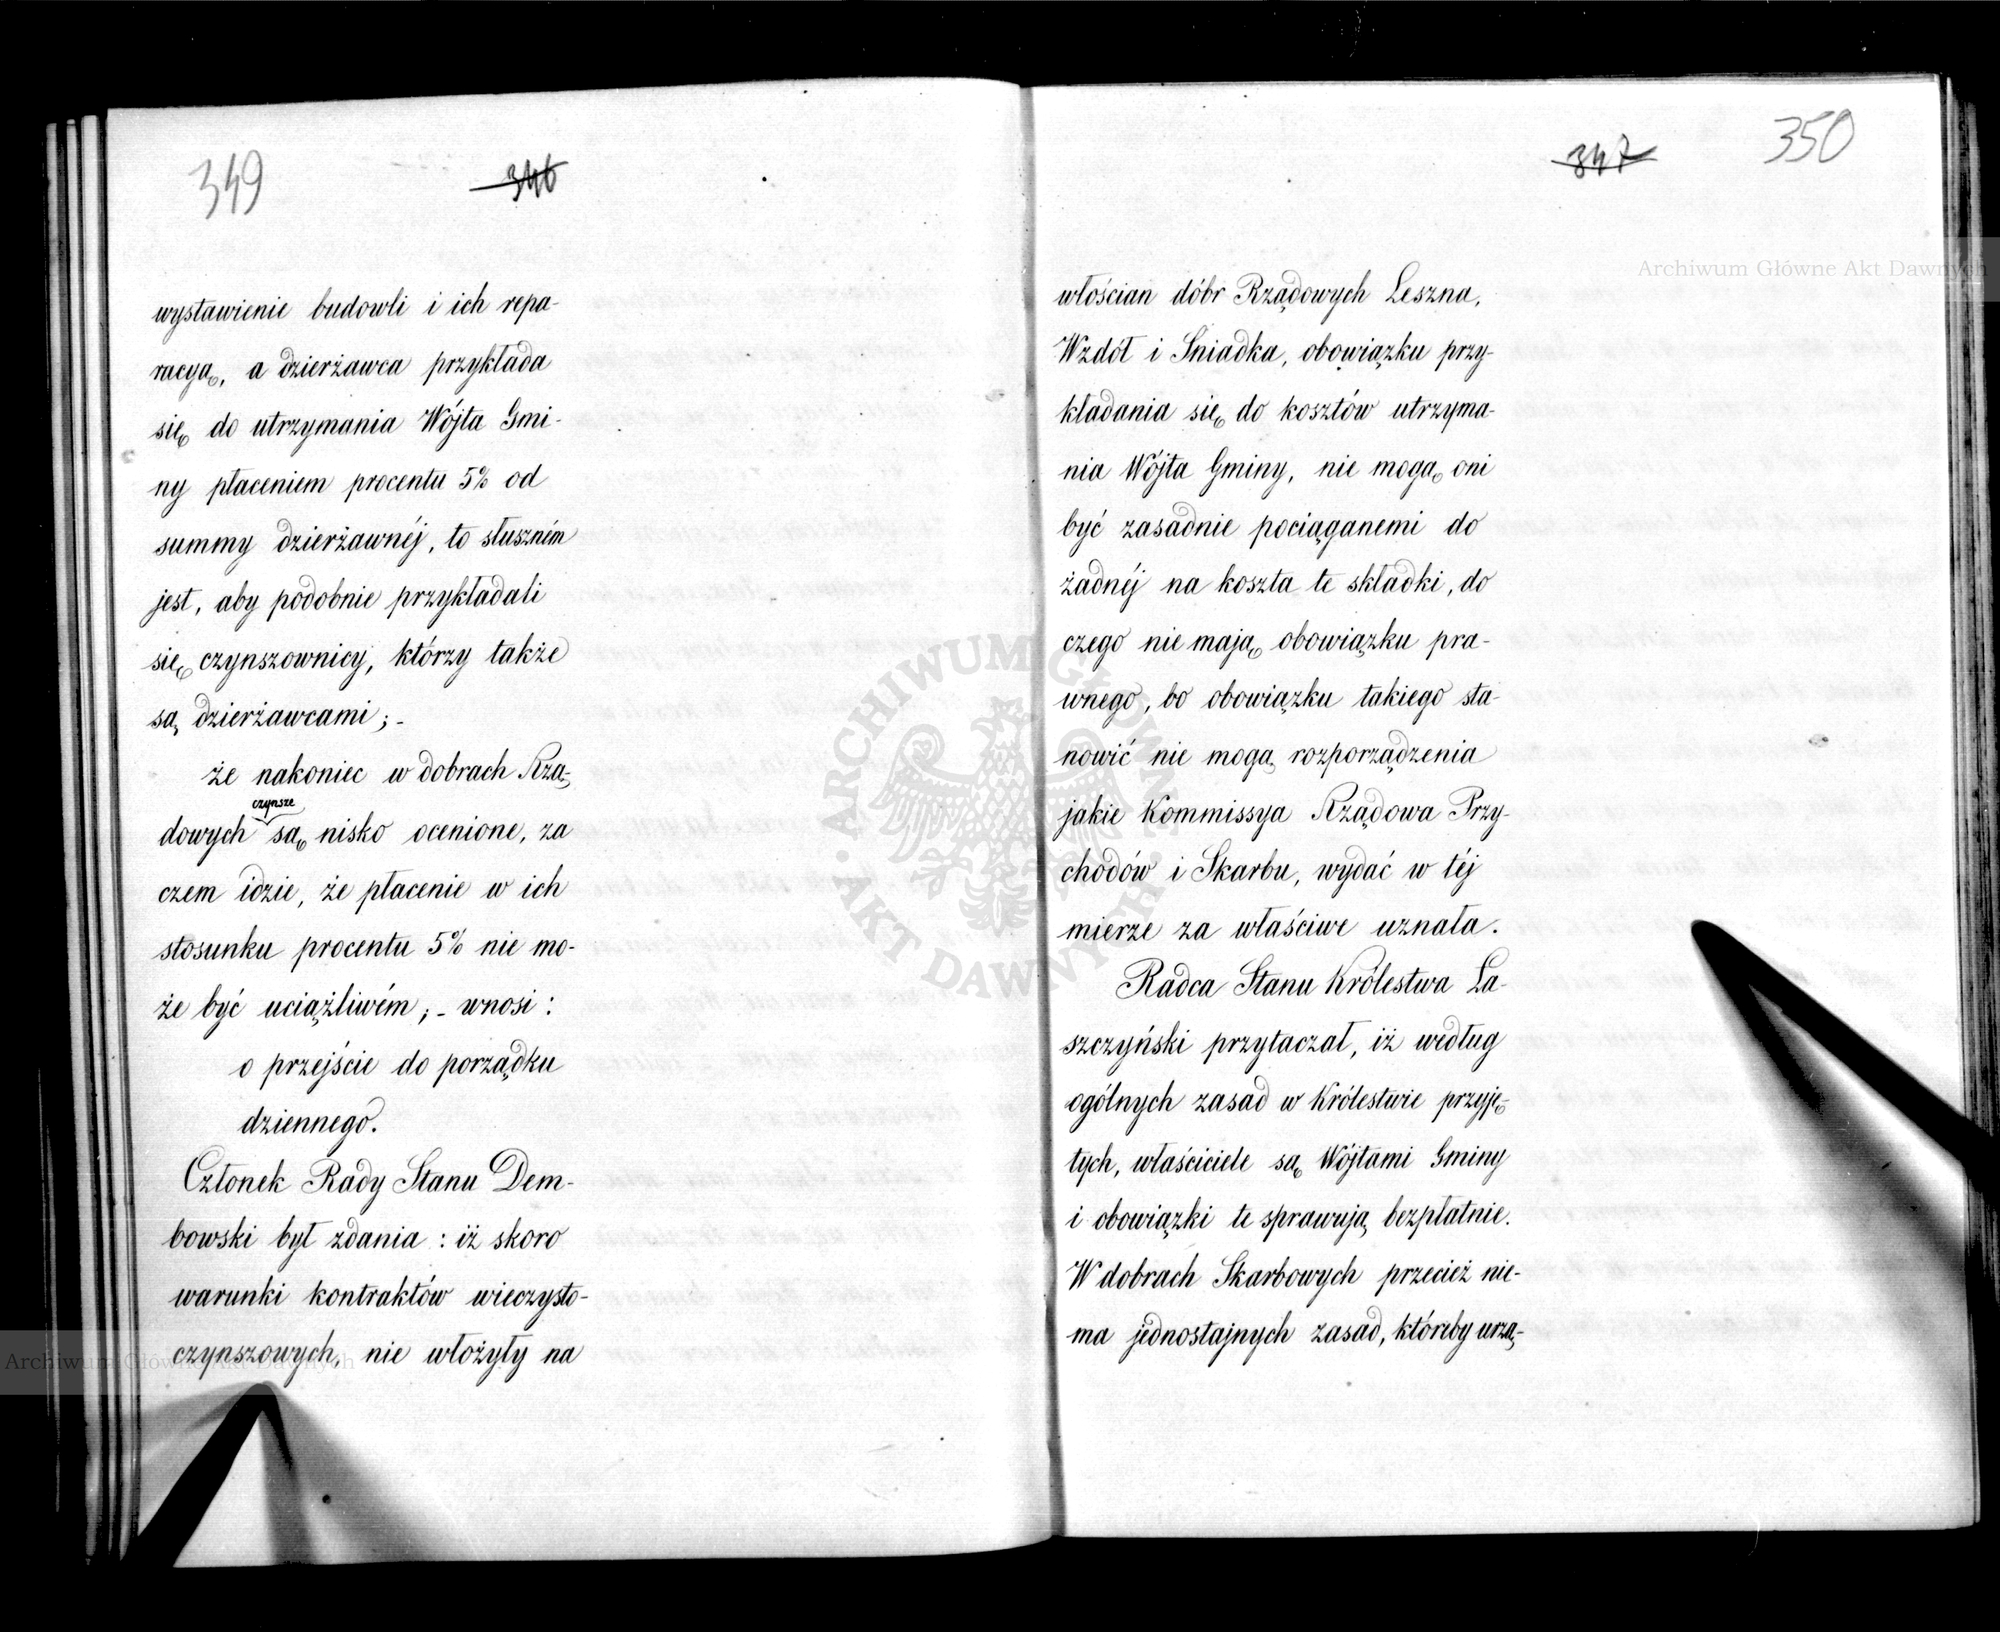 349
346
wystawienie budowli i ich repa-
racyą, a dzierżawca przykłada
się do utrzymania Wójta Gmi-
ny płaceniem procentu 5% od
summy dzierżawnéj, to słuszném
jest, aby podobnie przykładali
się czynszownicy, którzy także
są dzierżawcami; -
że nakoniec w dobrach Rzą-
czynsze
dowych są nisko ocenione, za
czem idzie, że płacenie w ich
stosunku procentu 5% nie mo-
że być uciążliwém; - wnosi:
o przejście do porządku
dziennego.
Członek Rady Stanu Dem-
bowski był zdania: iż skoro
warunki kontraktów wieczysto-
czynszowych, nie włożyły na
347
350
włościan dóbr Rządowych Leszna,
Wzdół i Sniadka, obowiązku przy-
kładania się do kosztów utrzyma-
nia Wójta Gminy, nie mogą oni
być zasadnie pociąganemi do
żadnéj na koszta te składki, do
czego nie mają obowiązku pra-
wnego, bo obowiązku takiego sta-
nowić nie mogą rozporządzenia
jakie Kommissya Rządowa Przy-
chodów i Skarbu, wydać w téj
mierze za właściwe uznała.
Radca Stanu Królestwa Ła-
szczyński przytaczał, iż według
ogólnych zasad w Królestwie przyję-
tych, właściciele są Wójtami Gminy
i obowiązki te sprawują bezpłatnie.
W dobrach Skarbowych przecież nie-
ma jednostajnych zasad, któreby urzą-
Archiwum Główne Akt Dawnych
Archiwum Główne Akt Dawnych
ARCHIWUM GŁÓWNE · AKT DAWNYCH ·